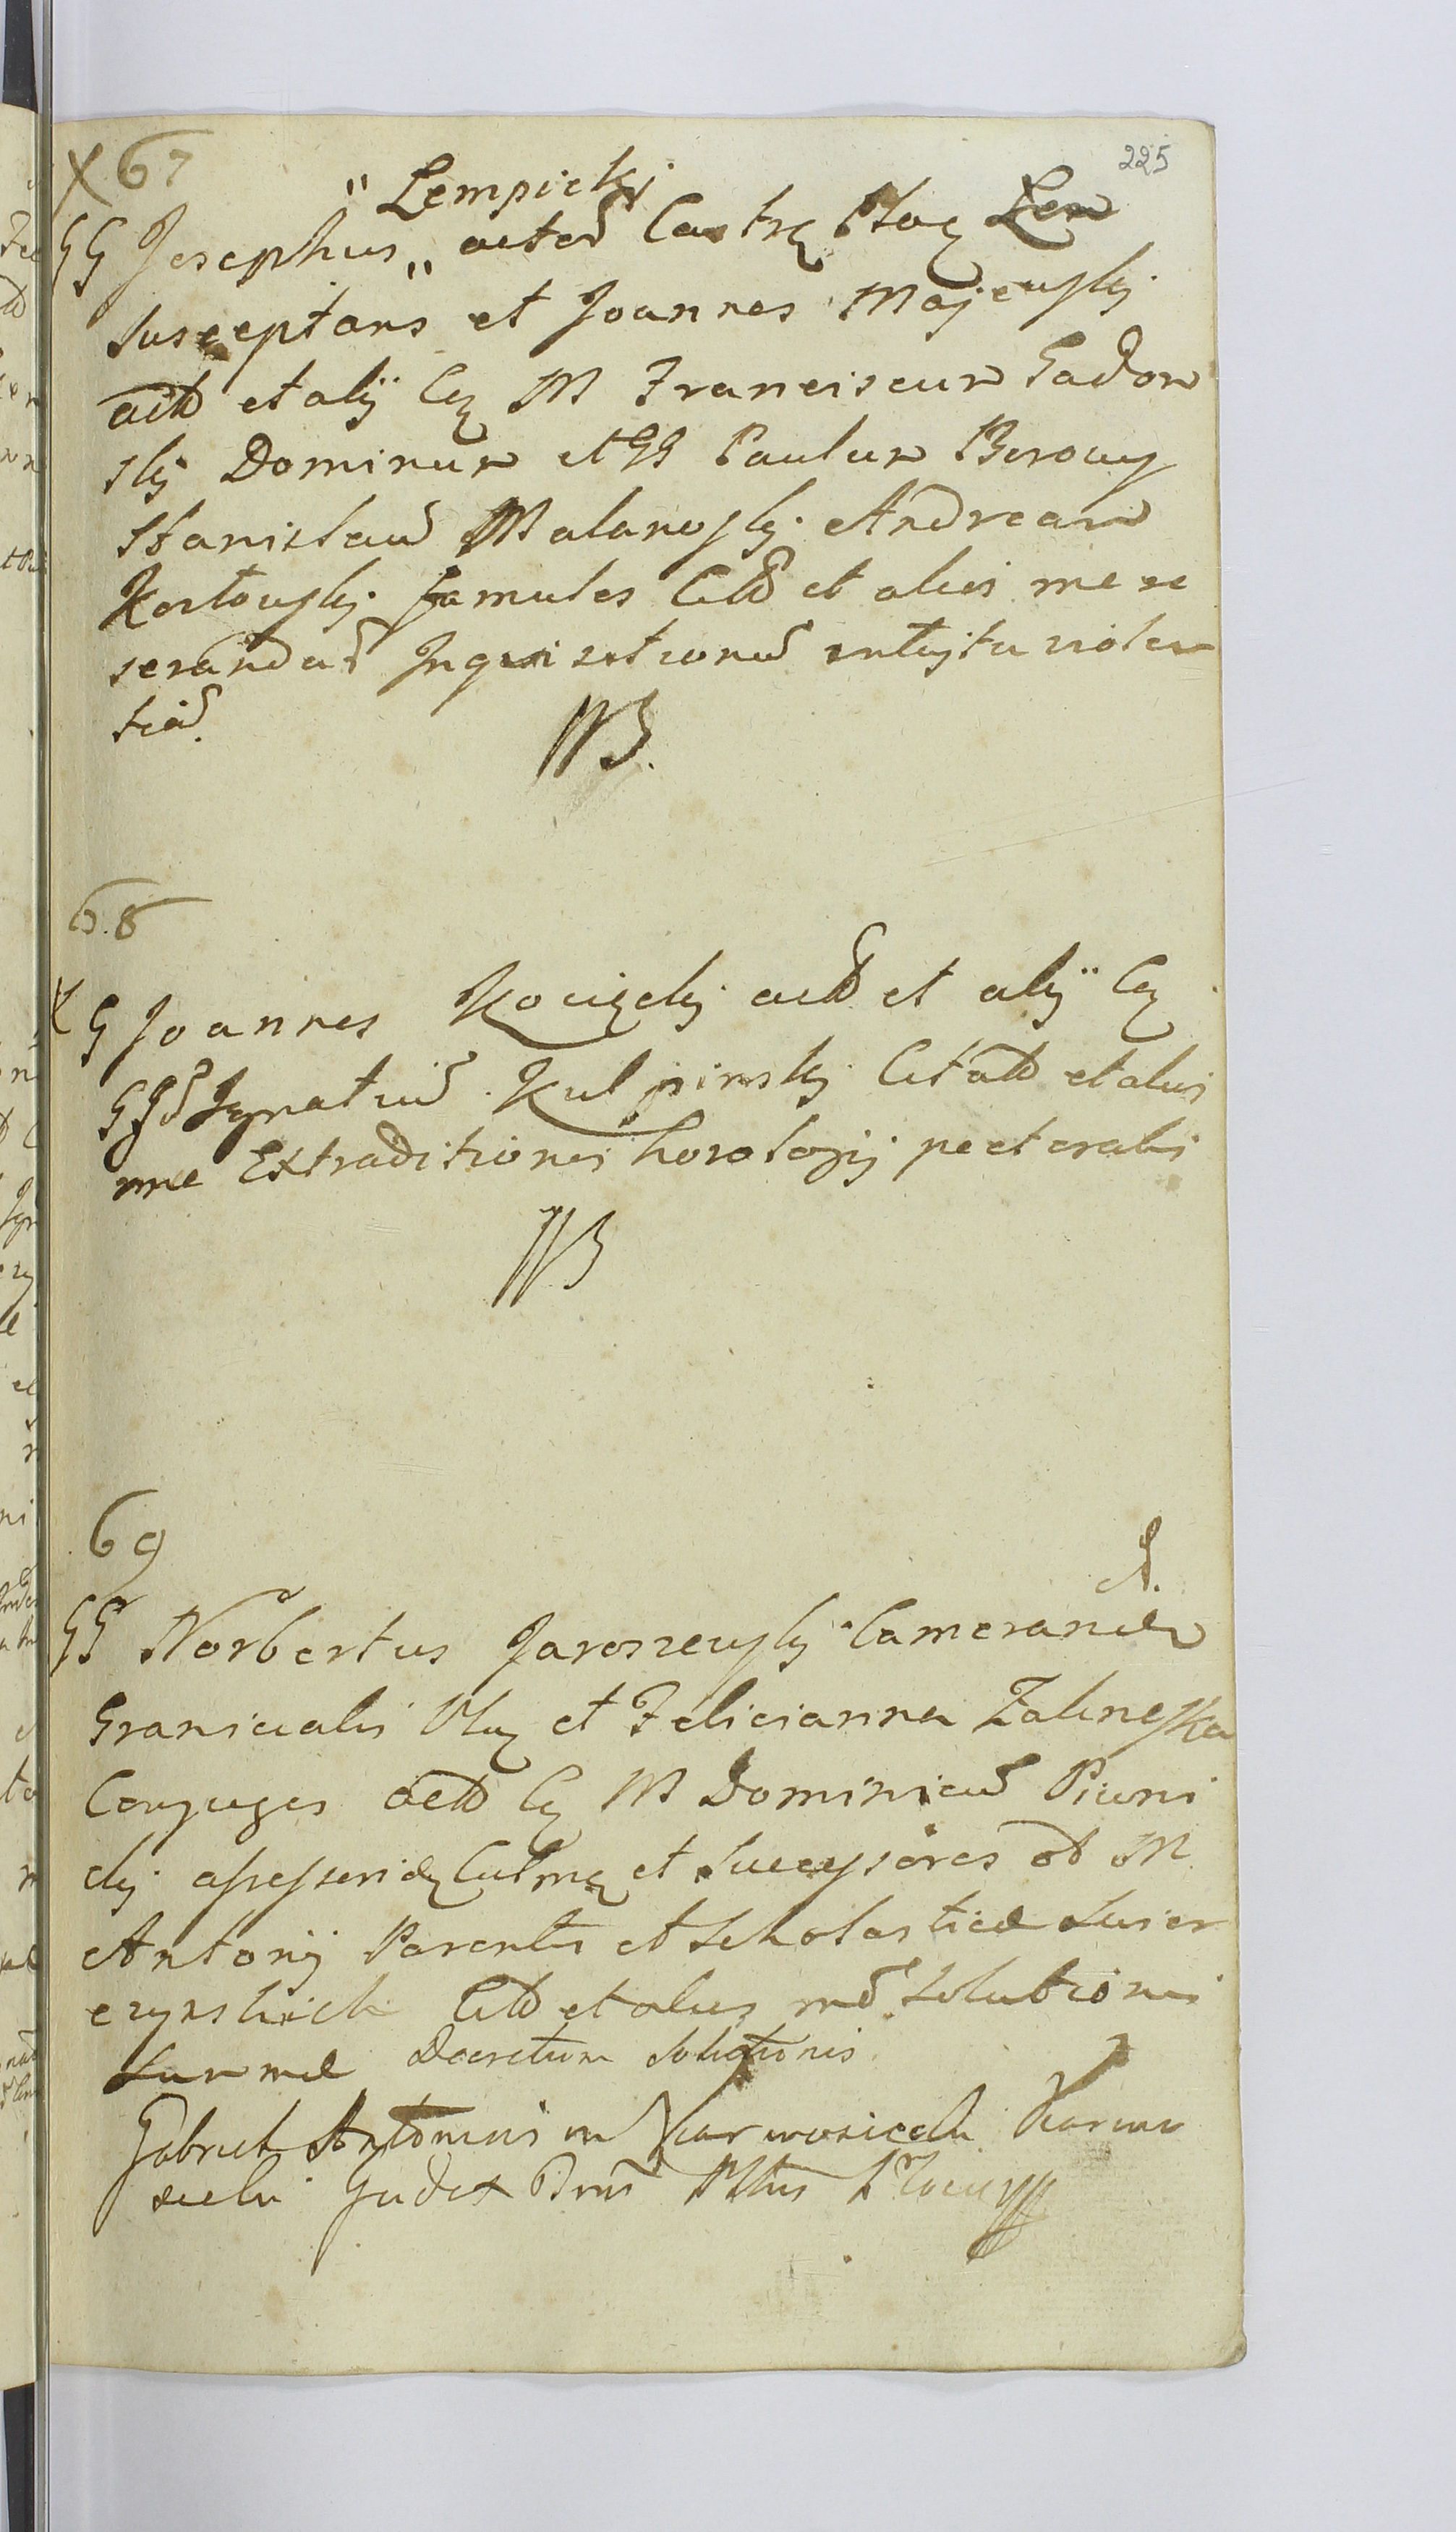 225
X 67
" Lempickj
GG Josephus " acto Castr Ploc Len
Susceptans et Joannes Majewskj
actt et alij C M Franciscum Gadom
skj Dominum et GG Paulum Borowy
Stanislau Malanoskj Andream
Kostowskj famulos Citt et alios me re
serandas Inquisitiones intuitu violen
tia
NB.
68
X G Joannes Kocizckj actt et alij C
GG Ignatiu Kulpinskj Citatt et alios
mne Extraditionis horologij pectoralis
NB
69
A.
GG Norbertus Jaroszewskj Camerarius
Granicialis Plo et Felicianna Zalineska
Conjuges actt C M Dominicu Piwni
ckj assessori Culm et Successores ol M
Antonij Parentis et Scholasticae Swier
czynskich Citt et alios me Solutionis
Summae Decretum Solutionis
Gabriel Antonius in Karwosiecki Karwo
siecki Judex